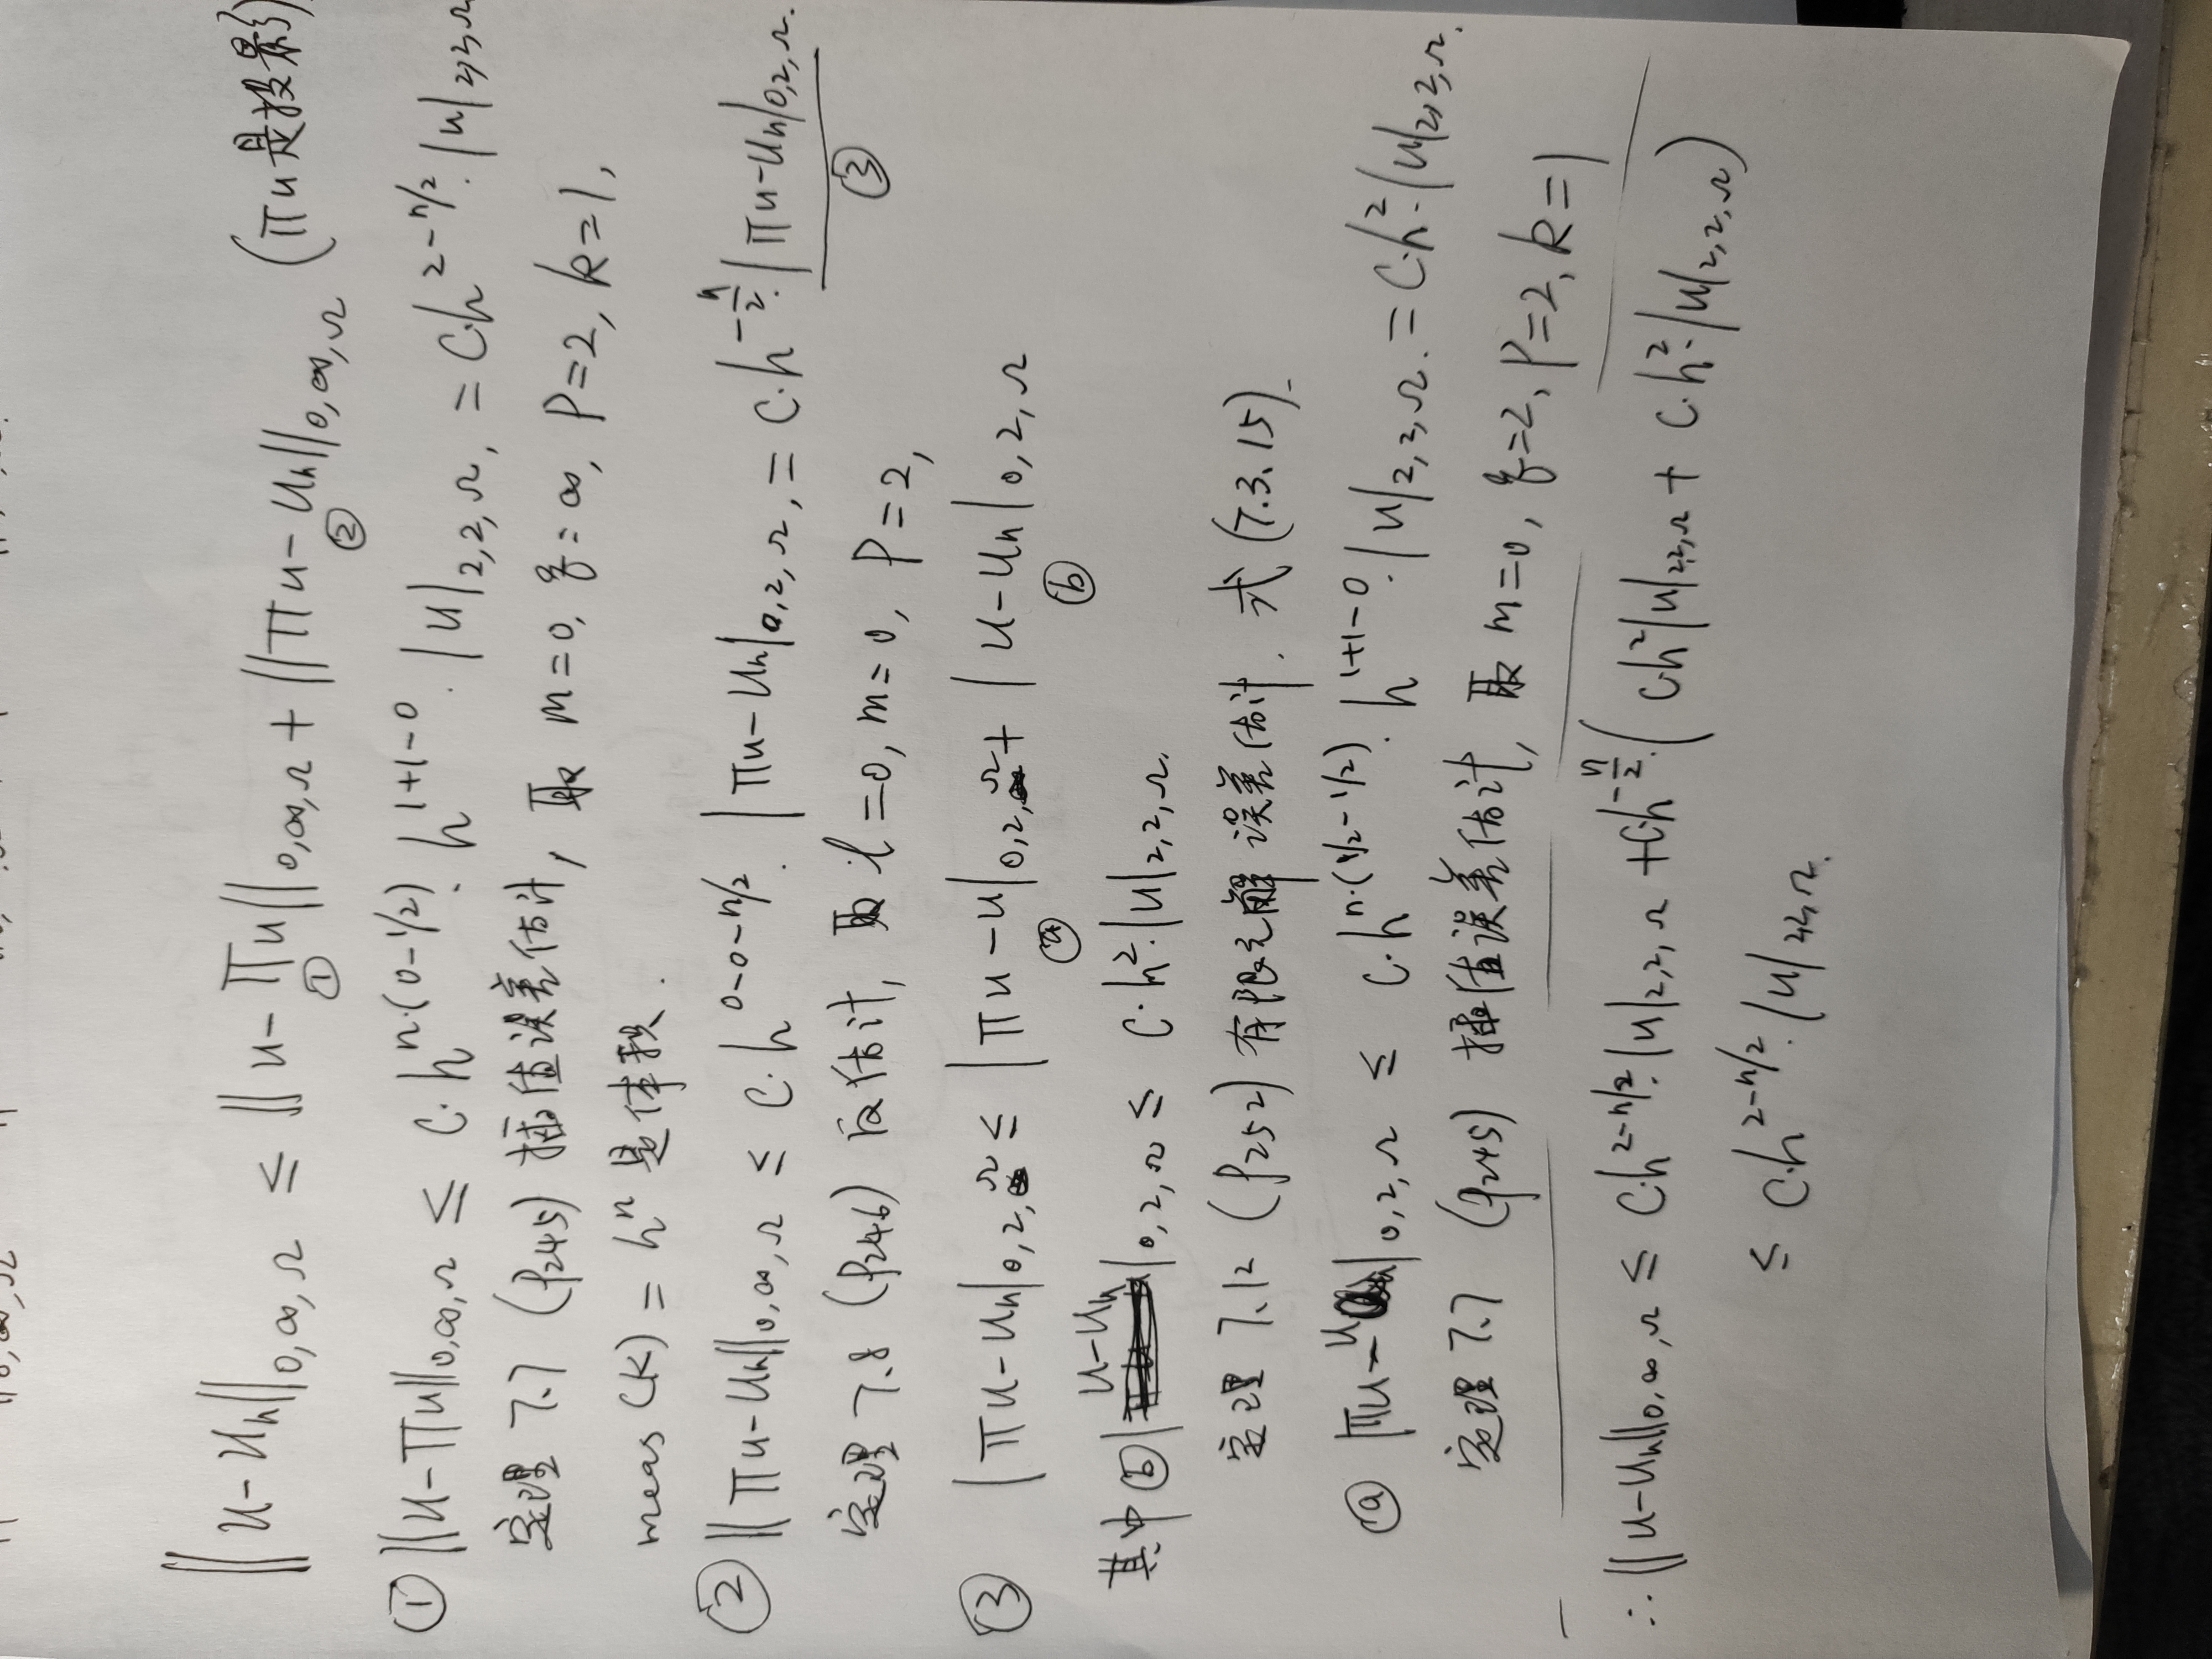 ‖u-uₕ‖₀,∞,Ω ≤ ‖u-Πu‖₀,∞,Ω + ‖Πu-uₕ‖₀,∞,Ω (Πu是投影)
① ②
① ‖u-Πu‖₀,∞,Ω ≤ C·h^{n·(0-1/2)}·h^{1+1-0}·|u|₂,₂,Ω, = C·h^{2-n/2}·|u|₂,₂,Ω
定理 7.7 (P245) 插值误差估计, 取 m=0, q=∞, P=2, k=1,
meas(K) = hⁿ 是体积.
② ‖Πu-uₕ‖₀,∞,Ω ≤ C·h^{0-0-n/2}·|Πu-uₕ|₀,₂,Ω, = C·h^{-n/2}·|Πu-uₕ|₀,₂,Ω.
③
定理 7.8 (P246) 反估计, 取 l=0, m=0, P=2,
③ |Πu-uₕ|₀,₂,Ω ≤ |Πu-u|₀,₂,Ω + |u-uₕ|₀,₂,Ω
ⓐ ⓑ
其中 ⓑ |u-uₕ|₀,₂,Ω ≤ C·h²·|u|₂,₂,Ω.
定理 7.12 (P252) 有限元解 误差估计. 式 (7.3.15).
ⓐ |Πu-u|₀,₂,Ω ≤ C·h^{n·(1/2-1/2)}·h^{1+1-0}·|u|₂,₂,Ω. = C·h²·|u|₂,₂,Ω.
定理 7.7 (P245) 插值误差估计, 取 m=0, q=2, P=2, k=1
∴ ‖u-uₕ‖₀,∞,Ω ≤ C·h^{2-n/2}·|u|₂,₂,Ω + C·h^{-n/2}·(C·h²|u|₂,₂,Ω + C·h²·|u|₂,₂,Ω)
≤ C·h^{2-n/2}·|u|₂,₂,Ω.